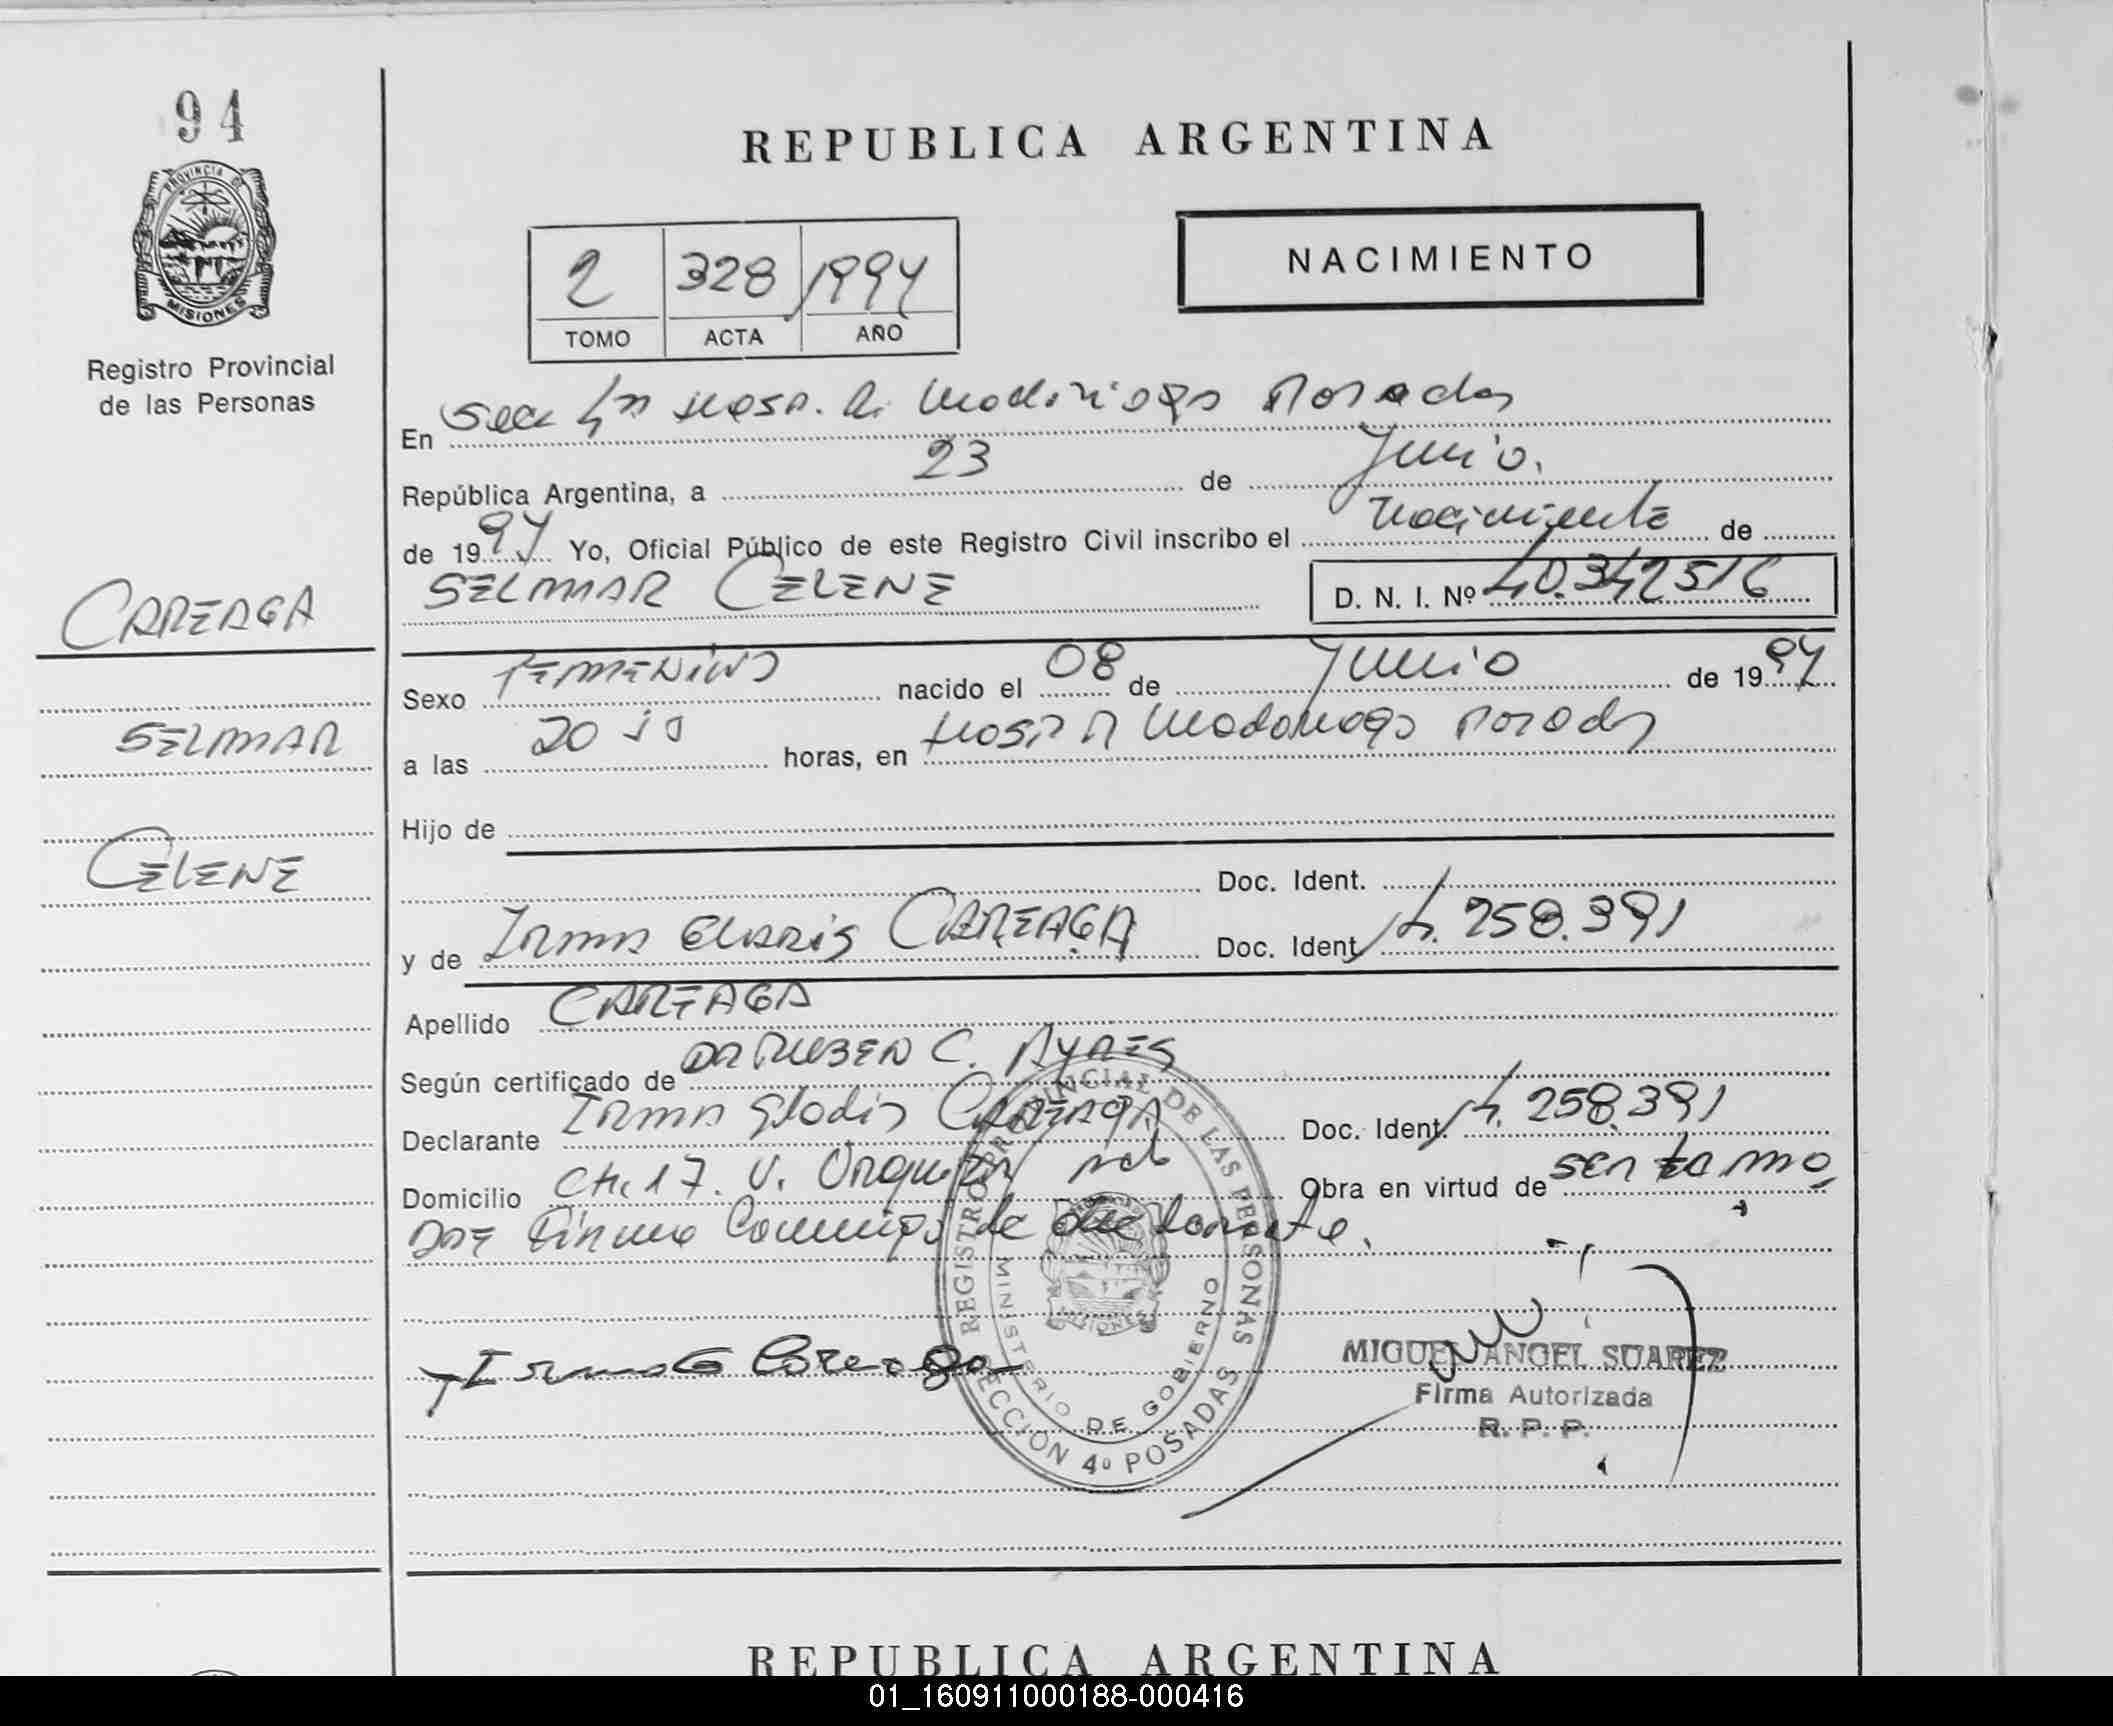 94
PROVINCIA DE
MISIONES
Registro Provincial
de las Personas
REPUBLICA ARGENTINA
2 328 1994
TOMO ACTA AÑO
NACIMIENTO
En Secc 4ta Hosp. R. Madariaga Posadas
República Argentina, a 23 de Junio.
de 1994 Yo, Oficial Público de este Registro Civil inscribo el nacimiento de
SELMAR CELENE
D. N. I. Nº 40.342516
CAREAGA
SELMAR
CELENE
Sexo FEMENINO nacido el 08 de Junio de 1994
a las 20 horas, en Hosp R Madariaga Posadas
Hijo de
Doc. Ident.
y de Irma CAREAGA Doc. Ident 258.391
Apellido CAREAGA
Según certificado de DR RUBEN C. AYRES
Declarante Irma Gladis CAREAGA Doc. Ident. 258.391
Domicilio CH. 17. V. Urquiza Obra en virtud de
de declarante.
REGISTRO PROVINCIAL DE LAS PERSONAS
MINISTERIO DE GOBIERNO
SECCION 4º POSADAS
MISIONES
Irma G Careaga
MIGUEL ANGEL SUAREZ
Firma Autorizada
R. P. P.
REPUBLICA ARGENTINA
01_160911000188-000416